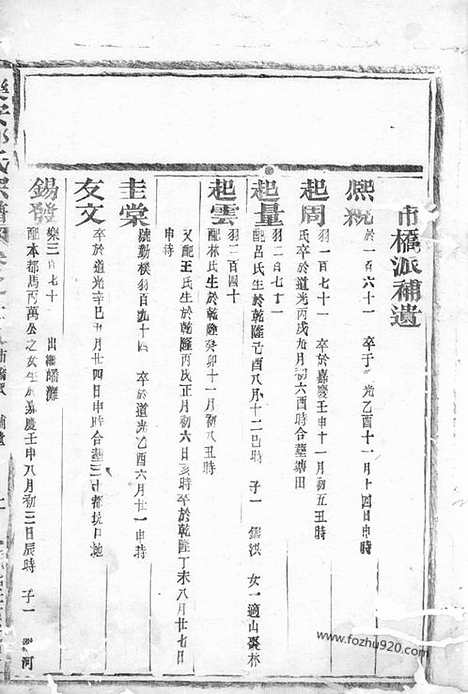 市橋派補遺
熙
於一百六十一 卒于 光乙酉十一月十四日申時
起周
羽一百七十一 卒於嘉慶壬申十一月初五丑時
氏卒於道光丙戌九月初六酉時合墓 田
起量
羽二百七十一
配呂氏生於乾隆己酉八月十二巳時 子一 錫 女一適山棗林
起雲
羽二百四十
配林氏生於乾隆癸卯十一月初八丑時
又配王氏生於乾隆丙戌正月初六日亥時卒於乾隆丁未八月廿七日
申時
圭棠
號勳樸羽百九十四 卒於道光乙酉六月廿一申時
友文
卒於道光辛巳五月廿四日申時合墓三十都坑口
錫發
樂三百七十一 出繼
配本都馬丙萬公之女生於嘉慶壬申八月初三日辰時 子一 河
氏宗譜
www.fozhu920.com